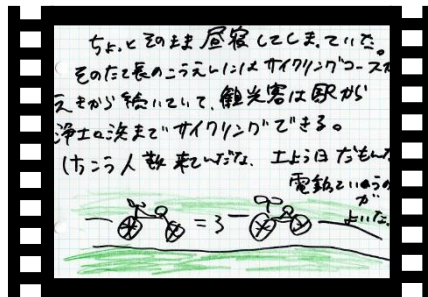 ちょっとそのまま昼寝してしまっていた。
そのたて長のこうえんにはサイクリングコースが
えきから続いていて、観光客は駅から
浄土ヶ浜までサイクリングできる。
けっこう人数来てんだな、土よう日だもんな
電動っていうの
が
よいな。